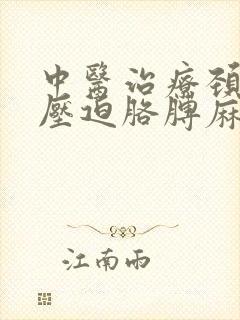 中醫治療頸
壓迫胳膊麻
江南雨